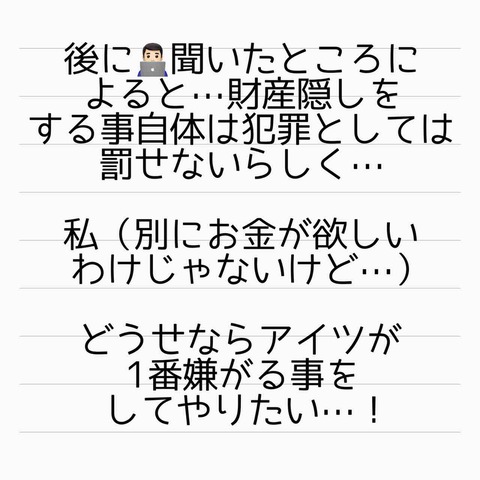 後に👨🏻‍💻聞いたところに
よると…財産隠しを
する事自体は犯罪としては
罰せないらしく…
私（別にお金が欲しい
わけじゃないけど…）
どうせならアイツが
1番嫌がる事を
してやりたい…！